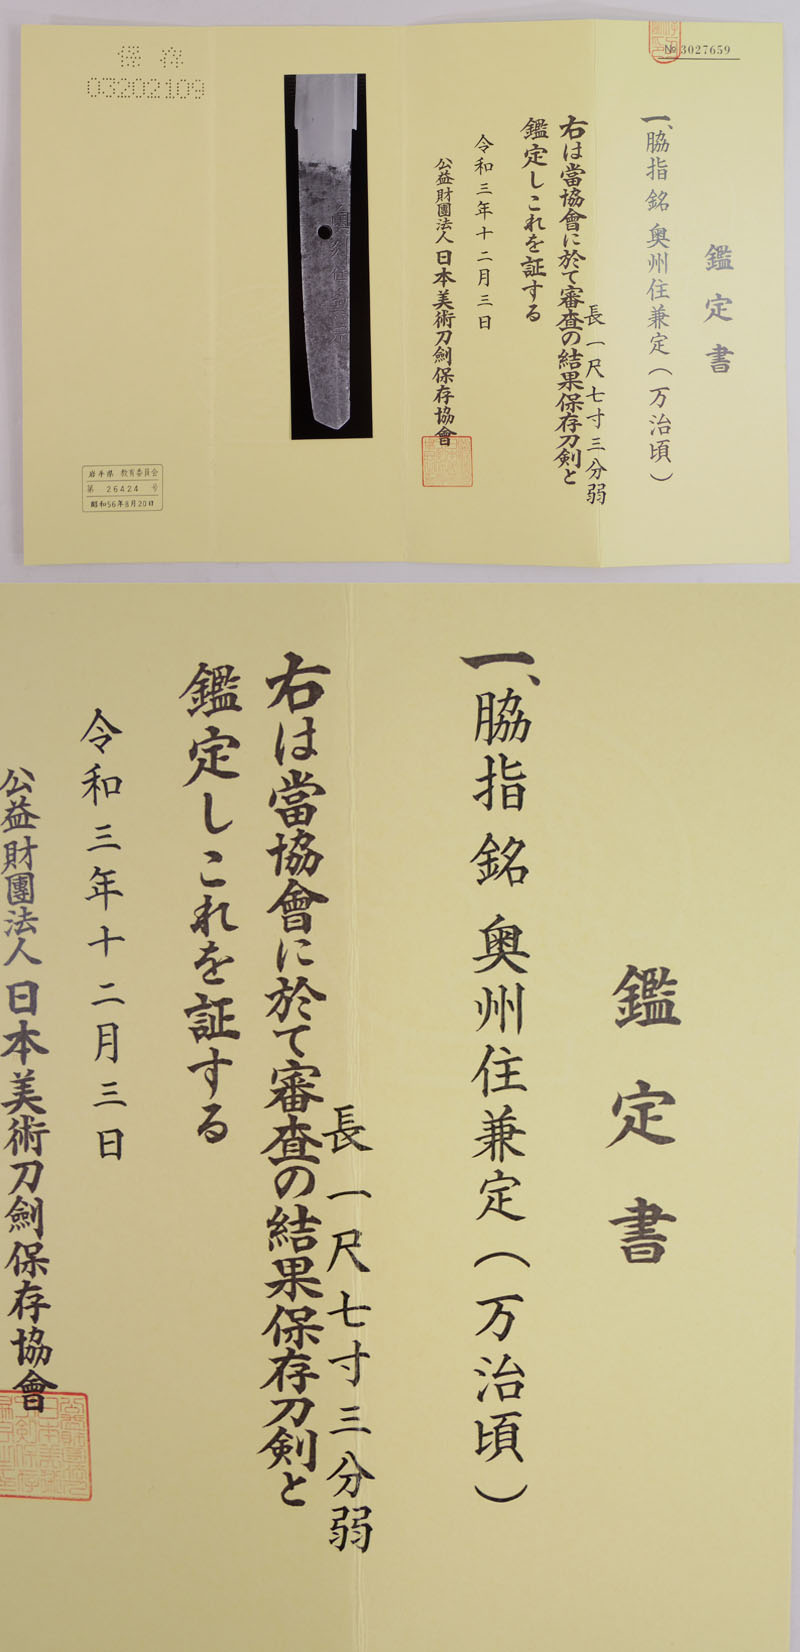 № 3027659
鑑定書
一、脇指 銘 奥州住兼定(万治頃)
長一尺七寸三分弱
右は當協會に於て審査の結果保存刀剣と
鑑定しこれを証する
令和三年十二月三日
公益財團法人日本美術刀劍保存協會
保存
03202109
岩手県 教育委員会
第 26424 号
昭和56年8月20日
鑑定書
一、脇指 銘 奥州住兼定(万治頃)
長一尺七寸三分弱
右は當協會に於て審査の結果保存刀剣と
鑑定しこれを証する
令和三年十二月三日
公益財團法人日本美術刀劍保存協會